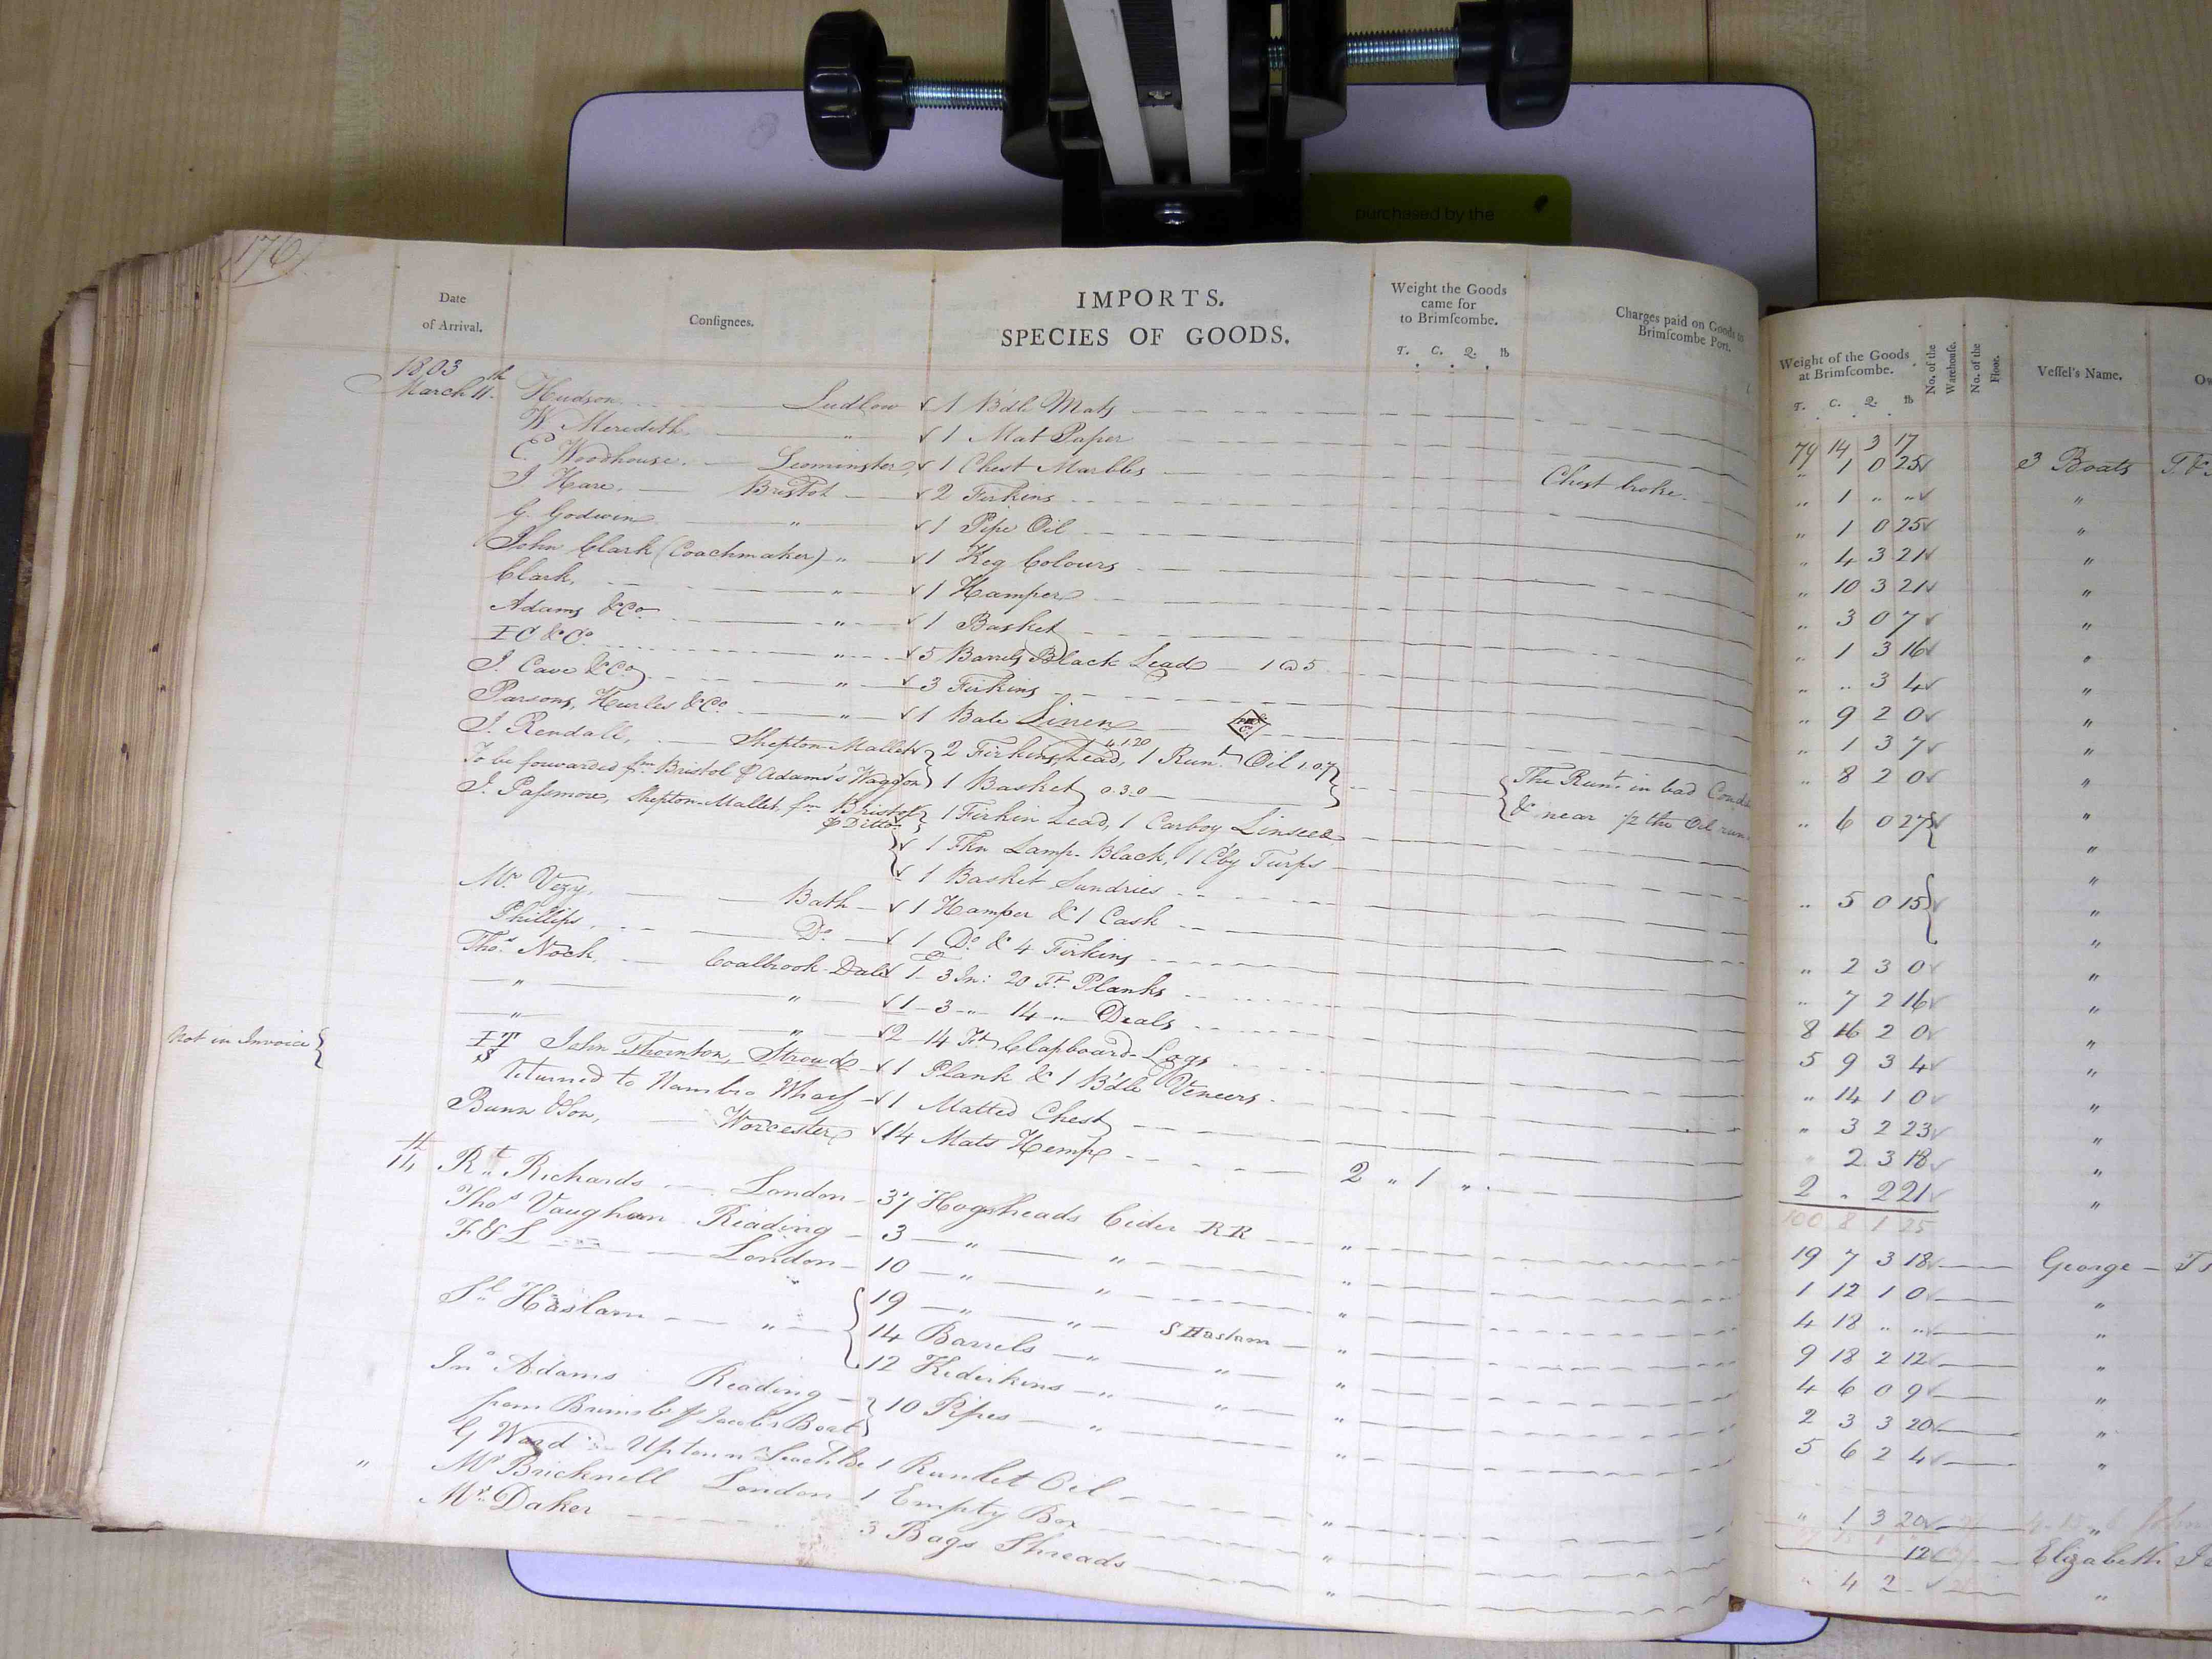 purchased by the
176
Date of Arrival.
Conſignees.
IMPORTS.
SPECIES OF GOODS.
Weight the Goods came for to Brimſcombe.
T. C. Q. lb
Charges paid on Goods to Brimſcombe Port.
Weight of the Goods at Brimſcombe.
T. C. Q. lb
No. of the Warehouſe.
No. of the Floor.
Veſſel's Name.
79 14 3 17
1803
March 11th Hudson Ludlow 1 Bdle Mats " 1 0 25 3 Boats
W. Meredith " 1 Mat Paper " 1 " " "
E. Woodhouse Leominster 1 Chest Marbles Chest broke. " 1 0 25 "
J Hare Bristol 2 Firkins " 4 3 21 "
G. Godwin " 1 Pipe Oil " 10 3 21 "
John Clark (Coachmaker) " 1 Keg Colours " 3 0 7 "
Clark, " 1 Hamper " 1 3 16 "
Adams &Co " 1 Basket " " 3 4 "
IC & Co " 5 Barrels Black Lead 1 @ 5 " 9 2 0 "
J. Cave &Co " 3 Firkins " 1 3 7 "
Parsons, Hurles & Co " 1 Bale Linen " 8 2 0 "
J. Rendall, Shepton Mallet 2 Firkins Lead, 4.1.20 1 Runt Oil 1.0.7 " 6 0 27 "
To be forwarded fm Bristol P Adams's Waggon 1 Basket 0.3.0 The Runt in bad & near 1/2 the Oil run
J. Paſsmore, Shepton-Mallet, fm Bristol P Ditto 1 Firkin Lead, 1 Carboy Linseed " 5 0 15 "
1 Fkn Lamp-Black, 1 Cby Turps "
1 Basket Sundries "
Mr Vezy, Bath 1 Hamper & 1 Cask " 2 3 0 "
Phillips, Do 1 Do & 4 Firkins " 7 2 16 "
Thos Nock Coalbrook-Dale 1 3 In: 20 Ft Planks 8 16 2 0 "
" " 1 - 3 - " 14 - " Deals 5 9 3 4 "
" " 2 14 Ft Clapboard-Logs " 14 1 0 "
Not in Invoice IT S John Thornton, Stroud 1 Plank & 1 Bdle Veneers " 3 2 23 "
returned to Hambro Wharf 1 Matted Chest " 2 3 18 "
Bunn & Son, Worcester 14 Mats Hemp 2 " 1 " 2 " 2 21 "
100 8 1 25
14 Rt Richards London 37 Hogsheads Cider RR " 19 7 3 18 George
Thos Vaughan Reading 3 " " " 1 12 1 0 "
F&L London 10 " " " 4 18 " " "
Sl Haslam " 19 " " S Haslam " 9 18 2 12 "
14 Barrels " " " 4 6 0 9 "
12 Kiderkins " " " 2 3 3 20 "
Jno Adams Reading 10 Pipes " " 5 6 2 4 "
from Jacobs Boat
G Ward Upton 1 Runlet Oil " " 1 3 20 "
" Mr Bricknell London 1 Empty Box " 12 Elizabeth
Mr Daker 3 Bags Shreds " " 4 2 "